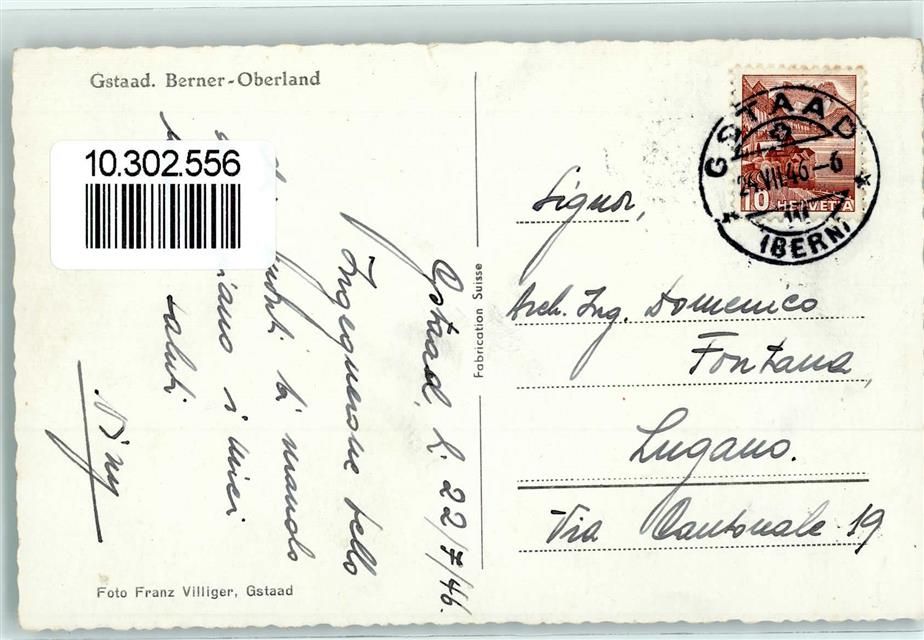 Gstaad. Berner-Oberland
10.302.556
Gstaad, li 22/7/46.
Ingegnerone bello
ti mando
i miei
saluti
Foto Franz Villiger, Gstaad
Fabrication Suisse
GSTAAD
24.VII.46-6
(BERN)
10 HELVETIA
Signor,
Arch. Ing. Domenico
Fontana,
Lugano.
Via Cantonale 19